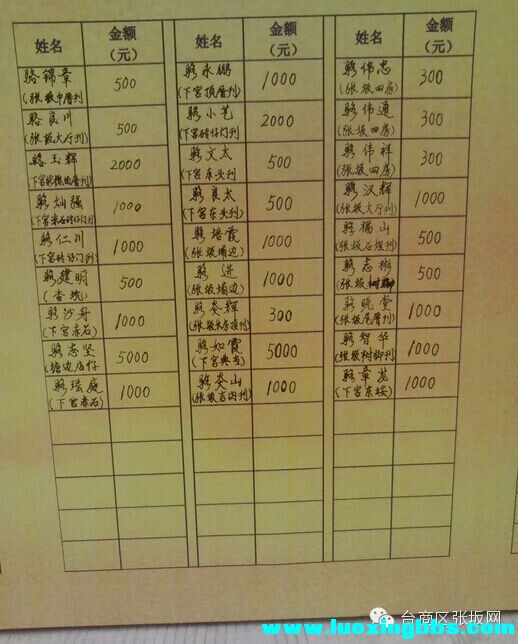 姓名 金额（元） 姓名 金额（元） 姓名 金额（元）
骆锦章 500 骆永鹏 1000 骆伟忠 300
(张坂中厝刋) (下宫顶厝刋) (张坂四房)
骆良川 500 骆小艺 2000 骆伟通 300
(张坂大厅刋) (下宫砖仔门刋) (张坂四房)
骆玉辉 2000 骆文太 500 骆伟祥 300
(下宫 厝刋) (下宫东头刋) (张坂四房)
骆灿强 1000 骆良太 500 骆汉辉 1000
(下宫 砖仔门刋) (下宫东头刋) (张坂大厅刋)
骆仁川 1000 骆培霞 1000 骆福山 500
(下宫砖仔门刋) (张坂埔边) (张坂石埕刋)
骆建明 500 骆进 1000 骆志彬 500
(杏坑) (张坂埔边) (张坂树脚)
骆沙舟 1000 骆奕辉 300 骆晓莹 1000
(下宫赤石) (张坂 顶刋) (张坂尾厝刋)
骆志坚 5000 骆如霞 5000 骆智华 1000
(塘边店仔) (下宫典当) (张坂树脚刋)
骆瑞庭 1000 骆奕山 1000 骆章龙 1000
(下宫赤石) (张坂 刋) (下宫东垵)
台商区张坂网
www.luoxingbbs.com